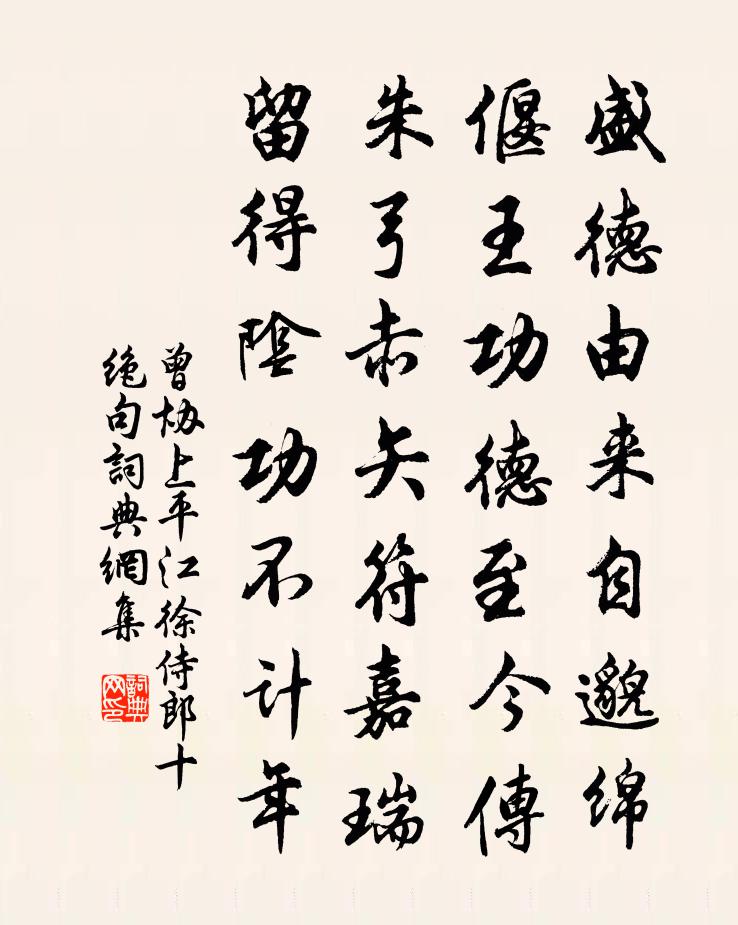 盛德由来自邈绵
偃王功德至今傳
朱弓赤矢符嘉瑞
留得陰功不計年
曾协上平江徐侍郎十
绝句詞典網集
詞典
网印